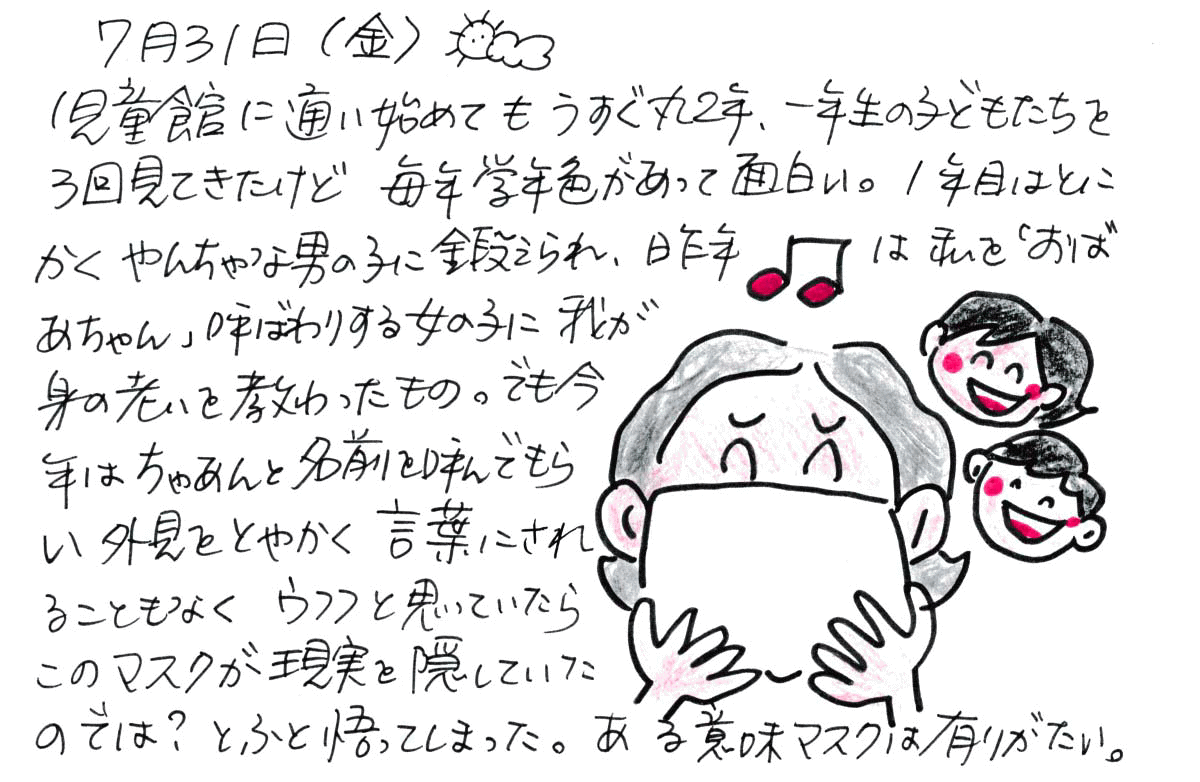 7月31日(金)
児童館に通い始めてもうすぐ丸2年、一年生の子どもたちを
3回見てきたけど 毎年学年色があって面白い。1年目はとに
かくやんちゃな男の子に鍛えられ、昨年は私を「おば
あちゃん」呼ばわりする女の子に我が
身の老いを教わったもの。でも今
年はちゃあんと名前を呼んでもら
い外見をとやかく言葉にされ
ることもなく ウフフと思っていたら
このマスクが現実を隠していた
のでは?とふと悟ってしまった。ある意味マスクは有りがたい。